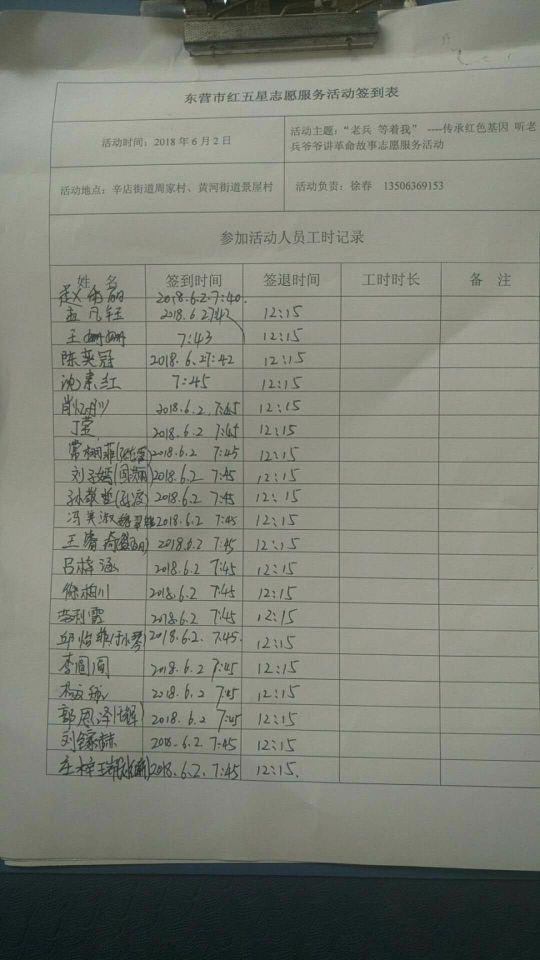 东营市红五星志愿服务活动签到表
活动时间：2018 年 6 月 2 日
活动主题：“老兵 等着我” ----传承红色基因 听老
兵爷爷讲革命故事志愿服务活动
活动地点：辛店街道周家村、黄河街道景屋村
活动负责：徐春 13506369153
参加活动人员工时记录
姓 名 签到时间 签退时间 工时时长 备 注
2018.6.2.7:40.
孟凡钰 2018.6.27:42 12:15
王姗姗 7:43 12:15
陈奕冠 2018.6.27:42 12:15
沈素红 7:45 12:15
2018.6.2 7:45 12:15
丁莹 2018.6.2 7:45 12:15
2018.6.2 7:45 12:15
刘子嫣 2018.6.2 7:45 12:15
2018.6.2 7:45 12:15
冯美淑 2018.6.2 7:45 12:15
2018.6.2 7:45 12:15
吕梓涵 2018.6.2 7:45 12:15
徐柏川 2018.6.2 7:45 12:15
2018.6.2 7:45 12:15
邱怡菲 2018.6.2. 7:45. 12:15
李圆圆 2018.6.2 7:45 12:15
2018.6.2 7:45 12:15
郭恩泽 2018.6.2 7:45 12:15
2018.6.2 7:45 12:15
2018.6.2. 7:45 12:15.